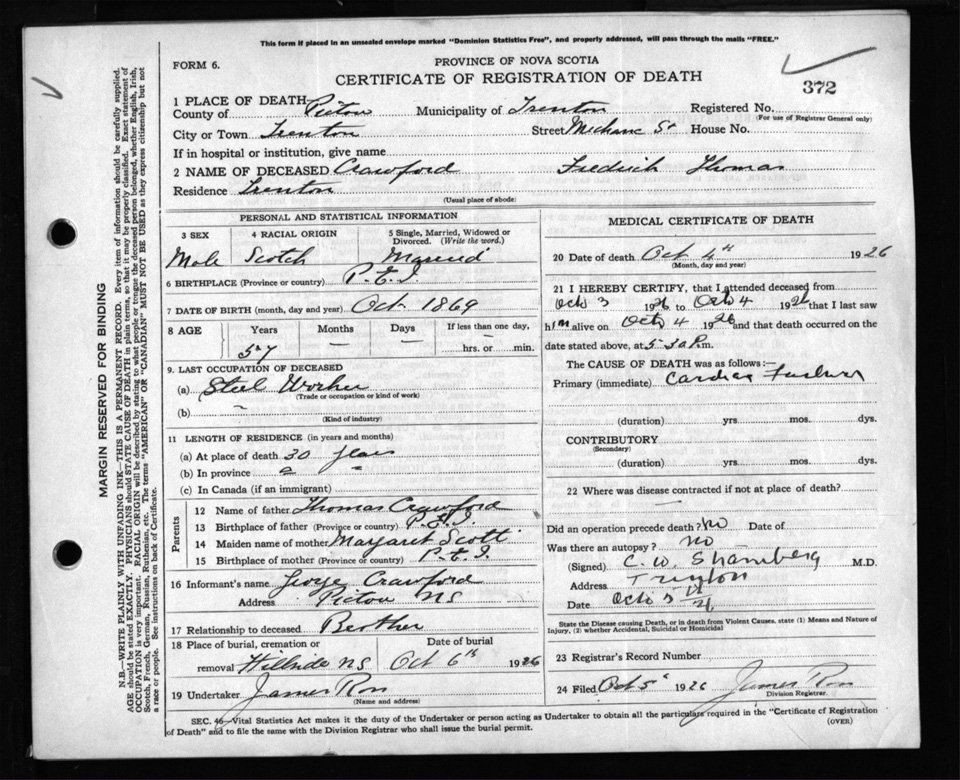 This form if placed in an unsealed envelope marked "Dominion Statistics Free", and properly addressed, will pass through the mails "FREE."
FORM 6.
PROVINCE OF NOVA SCOTIA
CERTIFICATE OF REGISTRATION OF DEATH
372
1 PLACE OF DEATH
County of Pictou Municipality of Trenton Registered No.
(For use of Registrar General only)
City or Town Trenton Street Mechanic St House No.
If in hospital or institution, give name
2 NAME OF DECEASED Crawford Fredrich Thomas
Residence Trenton
(Usual place of abode)
PERSONAL AND STATISTICAL INFORMATION
3 SEX 4 RACIAL ORIGIN 5 Single, Married, Widowed or Divorced. (Write the word.)
Male Scotch Married
6 BIRTHPLACE (Province or country) P.E.I.
7 DATE OF BIRTH (month, day and year) Oct. 1869
8 AGE Years Months Days If less than one day,
57 — — hrs. or min.
9. LAST OCCUPATION OF DECEASED
(a) Steel Worker
(Trade or occupation or kind of work)
(b) —
(Kind of industry)
11 LENGTH OF RESIDENCE (in years and months)
(a) At place of death 30 years
(b) In province " "
(c) In Canada (if an immigrant)
Parents
12 Name of father Thomas Crawford
13 Birthplace of father (Province or country) P.E.I.
14 Maiden name of mother Margaret Scott
15 Birthplace of mother (Province or country) P.E.I.
16 Informant's name George Crawford
Address Pictou NS
17 Relationship to deceased Brother
18 Place of burial, cremation or removal Hillside NS Date of burial Oct 6th 1926
19 Undertaker James Ross
(Name and address)
MEDICAL CERTIFICATE OF DEATH
20 Date of death Oct 4th 1926
(Month, day and year)
21 I HEREBY CERTIFY, that I attended deceased from
Oct 3 1926 to Oct 4 1926 that I last saw
him alive on Oct 4 1926 and that death occurred on the
date stated above, at 5-30 P.m.
The CAUSE OF DEATH was as follows:—
Primary (immediate) Cardiac Failure
(duration) yrs. mos. dys.
CONTRIBUTORY
(Secondary)
(duration) yrs. mos. dys.
22 Where was disease contracted if not at place of death?
—
Did an operation precede death? no Date of
Was there an autopsy? no
(Signed) C. W. M.D.
Address Trenton
Date Oct 5
State the Disease causing Death, or in death from Violent Causes, state (1) Means and Nature of Injury, (2) whether Accidental, Suicidal or Homicidal
23 Registrar's Record Number
24 Filed Oct 5 1926 James Ross
Division Registrar.
SEC. 46—Vital Statistics Act makes it the duty of the Undertaker or person acting as Undertaker to obtain all the particulars required in the "Certificate of Registration
of Death" and to file the same with the Division Registrar who shall issue the burial permit.
(OVER)
MARGIN RESERVED FOR BINDING
N.B.—WRITE PLAINLY WITH UNFADING INK—THIS IS A PERMANENT RECORD. Every item of information should be carefully supplied.
AGE should be stated EXACTLY. PHYSICIANS should STATE CAUSE OF DEATH in plain terms, so that it may be properly classified. Exact statement of
OCCUPATION is very important. RACIAL ORIGIN will be described by stating to what people or tongue the deceased person belonged, whether English, Irish,
Scotch, French, German, Russian, Ruthenian, etc. The terms "AMERICAN" OR "CANADIAN" MUST NOT BE USED as they express citizenship but not
a race or people. See instructions on back of Certificate.